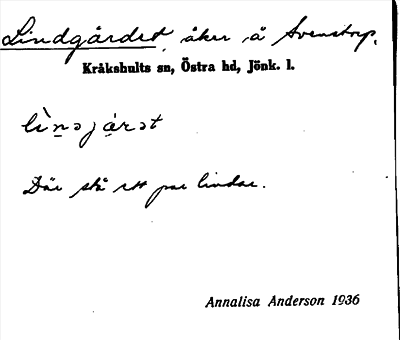 Lindgärdet, åker å Svenstorp.
Kråkshults sn, Östra hd, Jönk. l.
lìnəjárət
Där stå ett par lindar.
Annalisa Anderson 1936